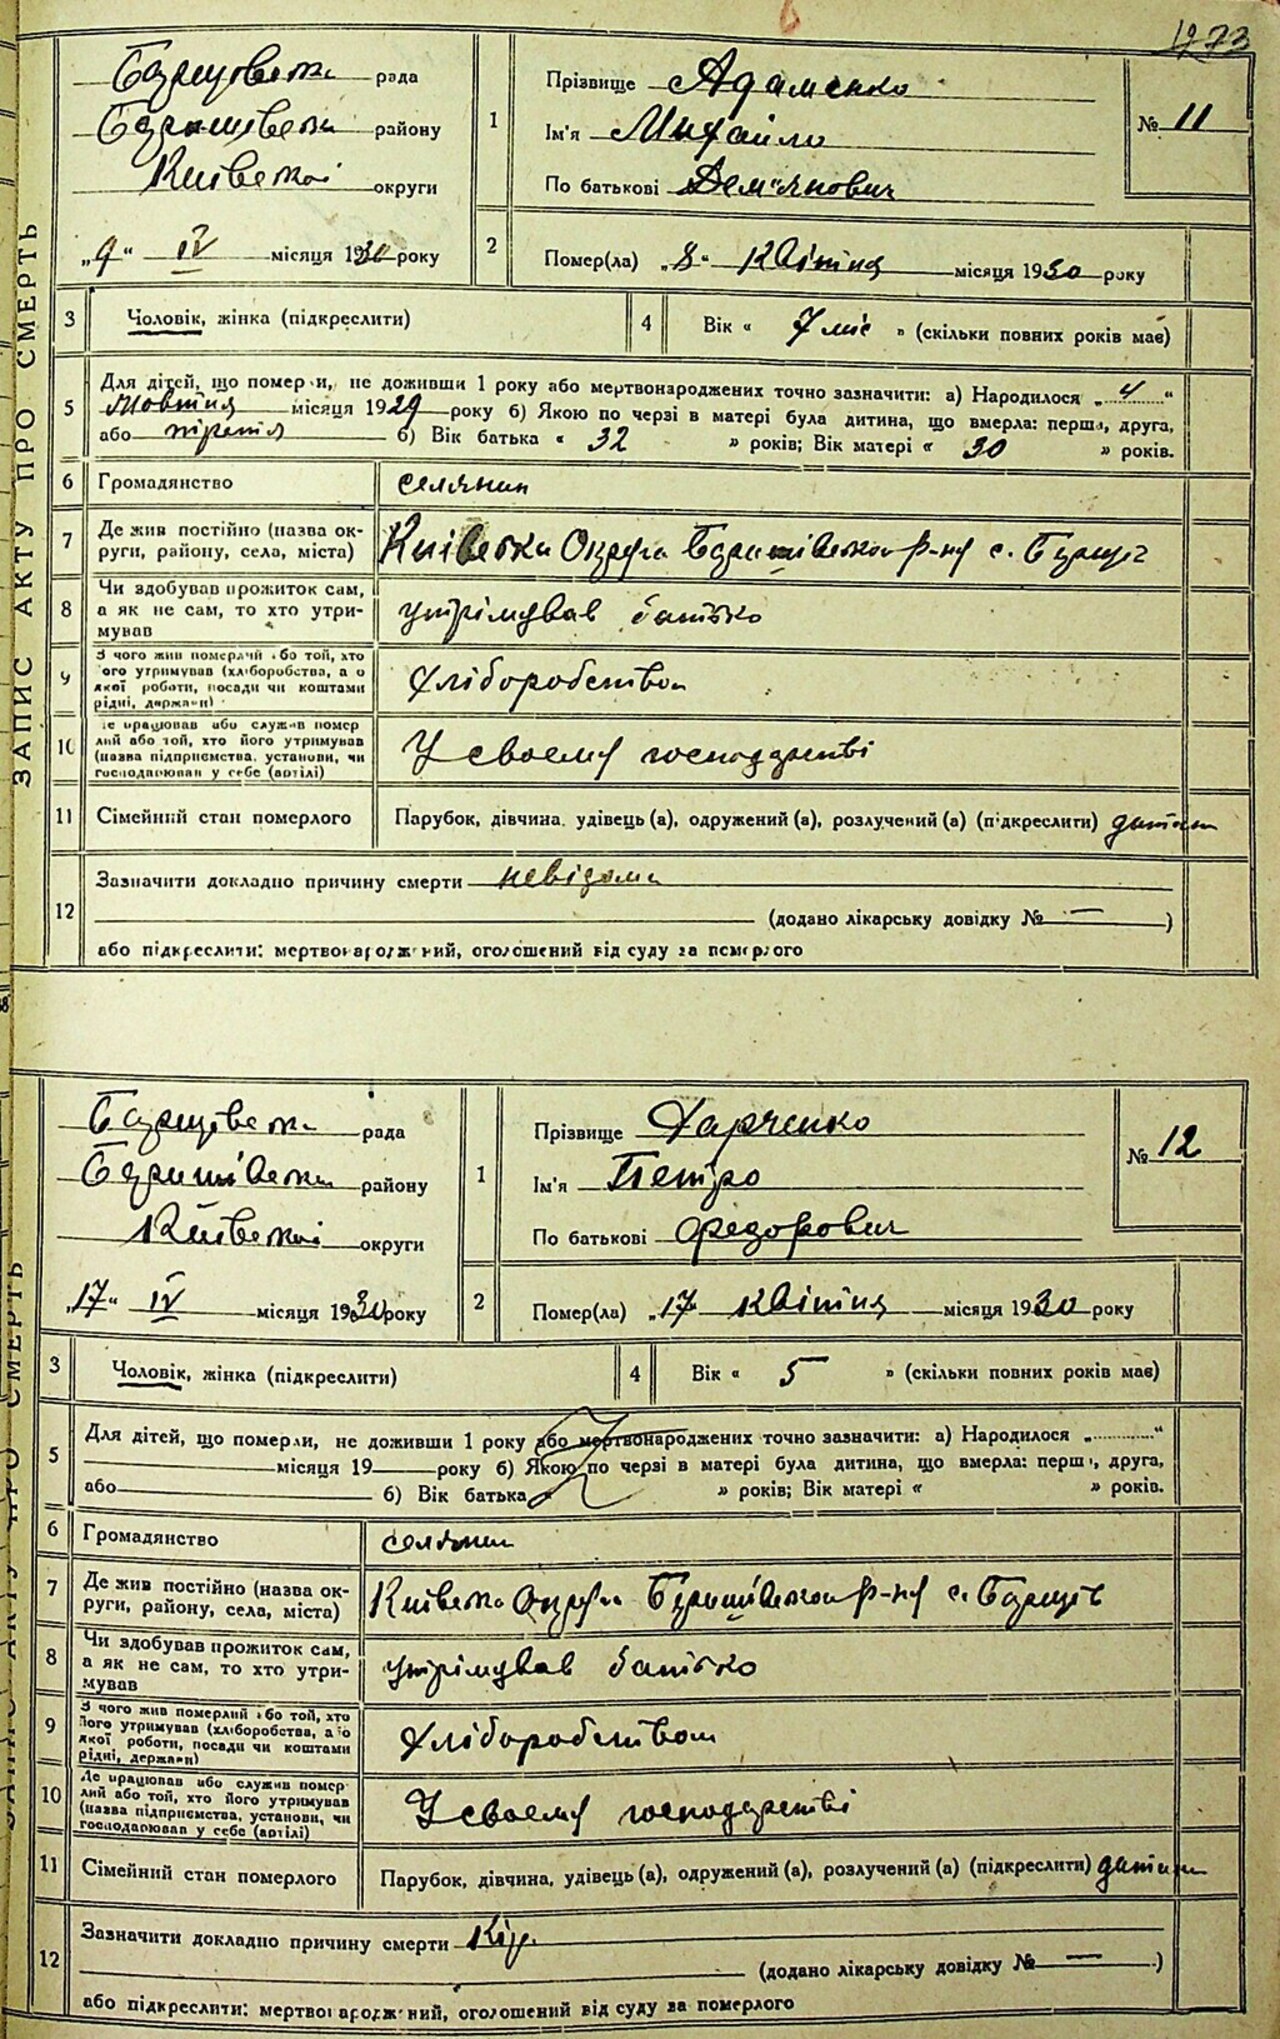 1973
ЗАПИС АКТУ ПРО СМЕРТЬ
рада
району
Київської округи
„9“ IV місяця 1930 року
1
Прізвище Адаменко
Ім'я Михайло
По батькові Дем'янович
№ 11
2
Помер(ла) „8“ квітня місяця 1930 року
3 Чоловік, жінка (підкреслити)
4 Вік « 7 міс » (скільки повних років має)
5 Для дітей, що померли, не доживши 1 року або мертвонароджених точно зазначити: а) Народилося „4“
жовтня місяця 1929 року б) Якою по черзі в матері була дитина, що вмерла: перша, друга,
або третя б) Вік батька « 32 » років; Вік матері « 30 » років.
6 Громадянство селянин
7 Де жив постійно (назва ок-
руги, району, села, міста)
Київська Округа р-ну с.
8 Чи здобував прожиток сам,
а як не сам, то хто утри-
мував
утрімував батько
9 З чого жив померлий або той, хто
його утримував (хліборобства, або
якої роботи, посади чи коштами
рідні, держави)
хліборобством
10 Де працював або служив помер
лий або той, хто його утримував
(назва підприємства, установи, чи
господарював у себе (артілі)
У своему господарстві
11 Сімейний стан померлого
Парубок, дівчина, удівець (а), одружений (а), розлучений (а) (підкреслити)
12 Зазначити докладно причину смерти невідома
(додано лікарську довідку № — )
або підкреслити: мертвонароджений, оголошений від суду за померлого
ЗАПИС АКТУ ПРО СМЕРТЬ
рада
району
Київської округи
„17“ IV місяця 1930 року
1
Прізвище Харченко
Ім'я Петро
По батькові Федорович
№ 12
2
Помер(ла) „17“ квітня місяця 1930 року
3 Чоловік, жінка (підкреслити)
4 Вік « 5 » (скільки повних років має)
5 Для дітей, що померли, не доживши 1 року або мертвонароджених точно зазначити: а) Народилося „ “
місяця 19 року б) Якою по черзі в матері була дитина, що вмерла: перша, друга,
або б) Вік батька « » років; Вік матері « » років.
6 Громадянство селянин
7 Де жив постійно (назва ок-
руги, району, села, міста)
Київська Округа р-ну с.
8 Чи здобував прожиток сам,
а як не сам, то хто утри-
мував
утрімував батько
9 З чого жив померлий або той, хто
його утримував (хліборобства, або
якої роботи, посади чи коштами
рідні, держави)
хліборобством
10 Де працював або служив помер
лий або той, хто його утримував
(назва підприємства, установи, чи
господарював у себе (артілі)
У своему господарстві
11 Сімейний стан померлого
Парубок, дівчина, удівець (а), одружений (а), розлучений (а) (підкреслити)
12 Зазначити докладно причину смерти Кір.
(додано лікарську довідку № — )
або підкреслити: мертвонароджений, оголошений від суду за померлого